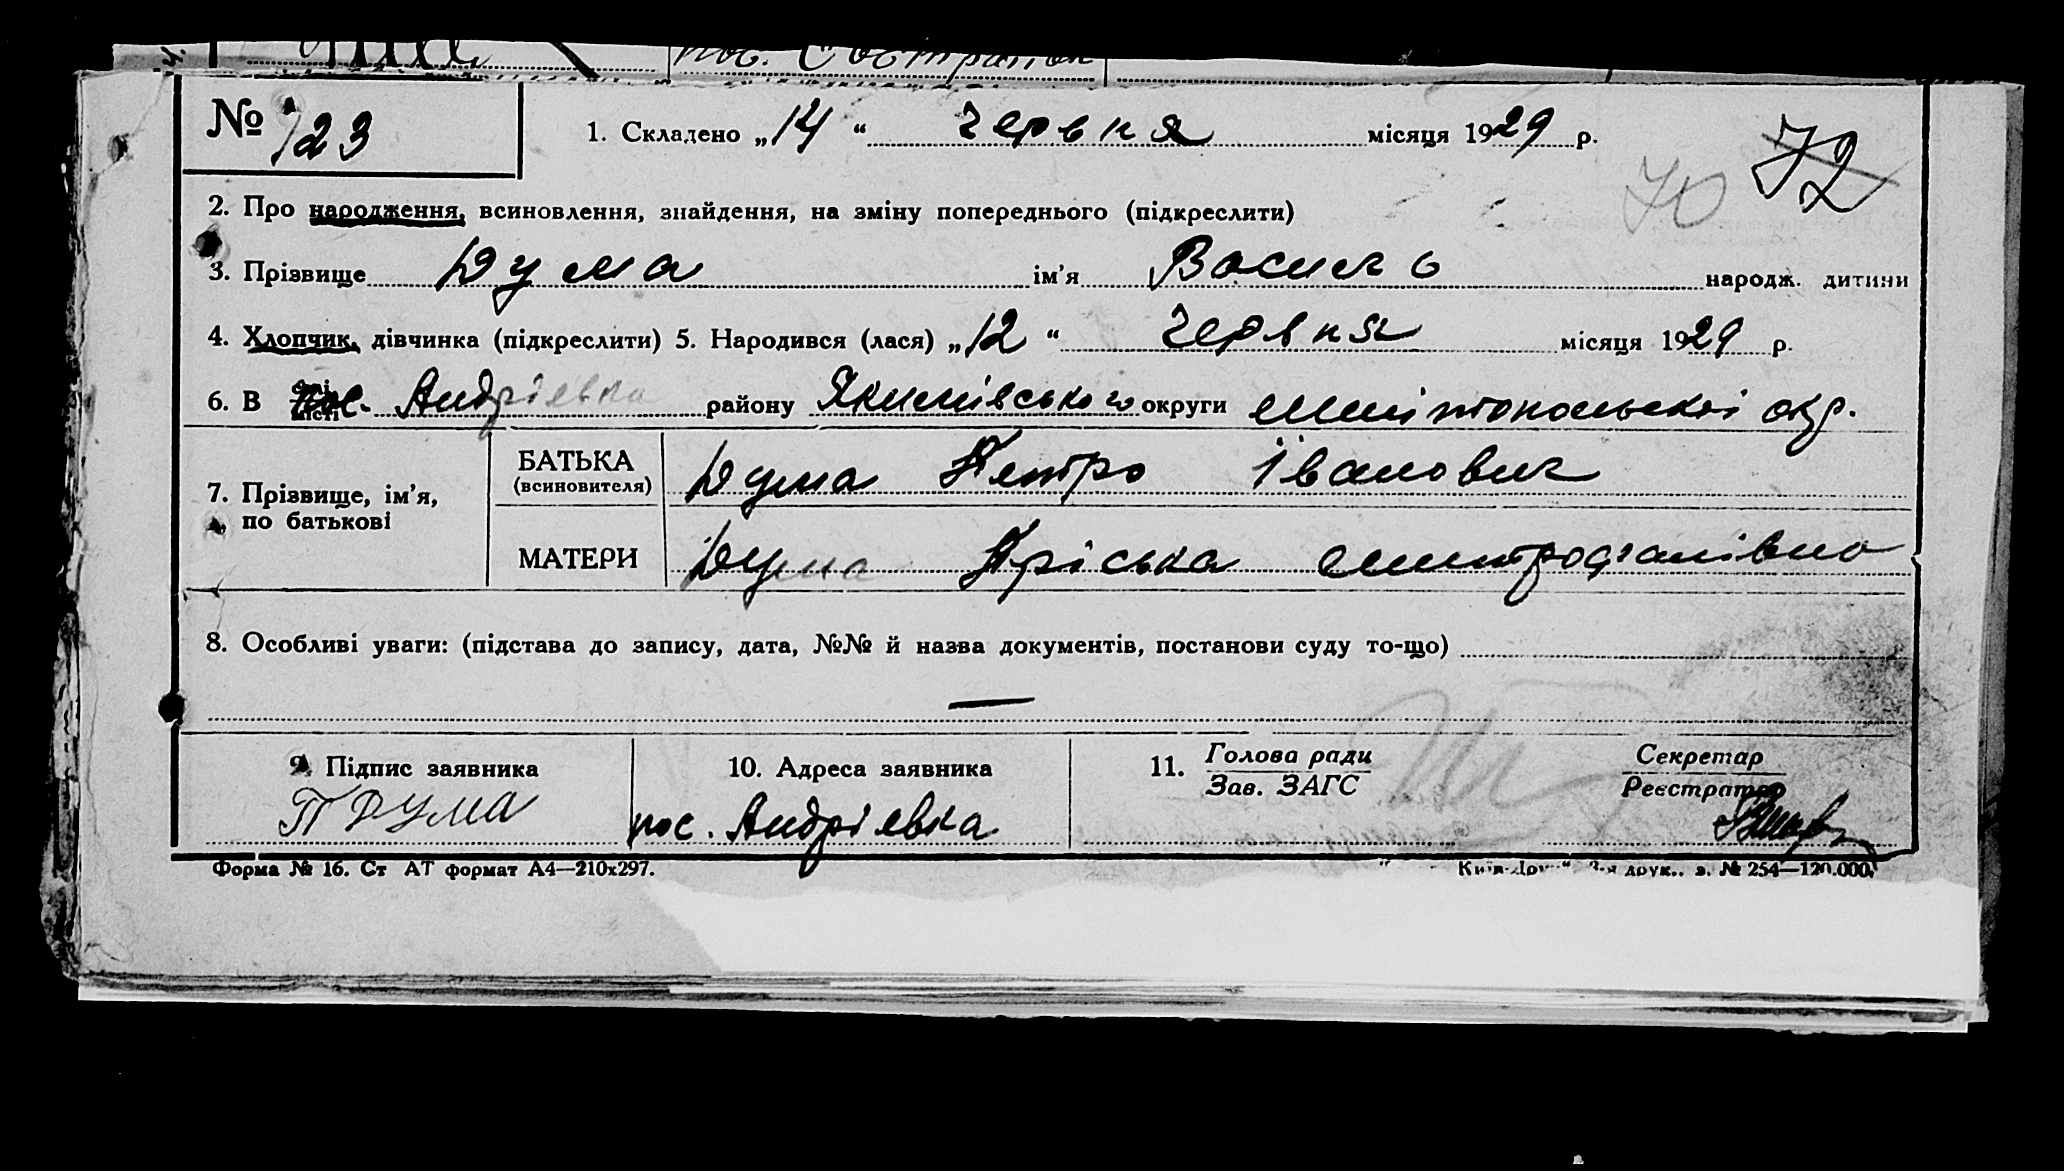 пос.
№ 123
1. Складено „14“ червня місяця 1929 р.
72
70
2. Про народження, всиновлення, знайдення, на зміну попереднього (підкреслити)
3. Прізвище Дума ім’я Василь народж. дитини
4. Хлопчик, дівчинка (підкреслити) 5. Народився (лася) „12“ червня місяця 1929 р.
6. В пос. Андріевка району Якимівського округи Мелітопольскоі окр.
7. Прізвище, ім’я, по батькові
БАТЬКА (всиновителя) Дума Петро Іванович
МАТЕРИ Дума Пріська Митрофанівна
8. Особливі уваги: (підстава до запису, дата, №№ й назва документів, постанови суду то-що)
—
9. Підпис заявника
П Дума
10. Адреса заявника
пос. Андріевка
11. Голова ради
Зав. ЗАГС
Секретар
Реєстратор
Форма № 16. Ст АТ формат А4—210х297.
друк., з. № 254—120.000.